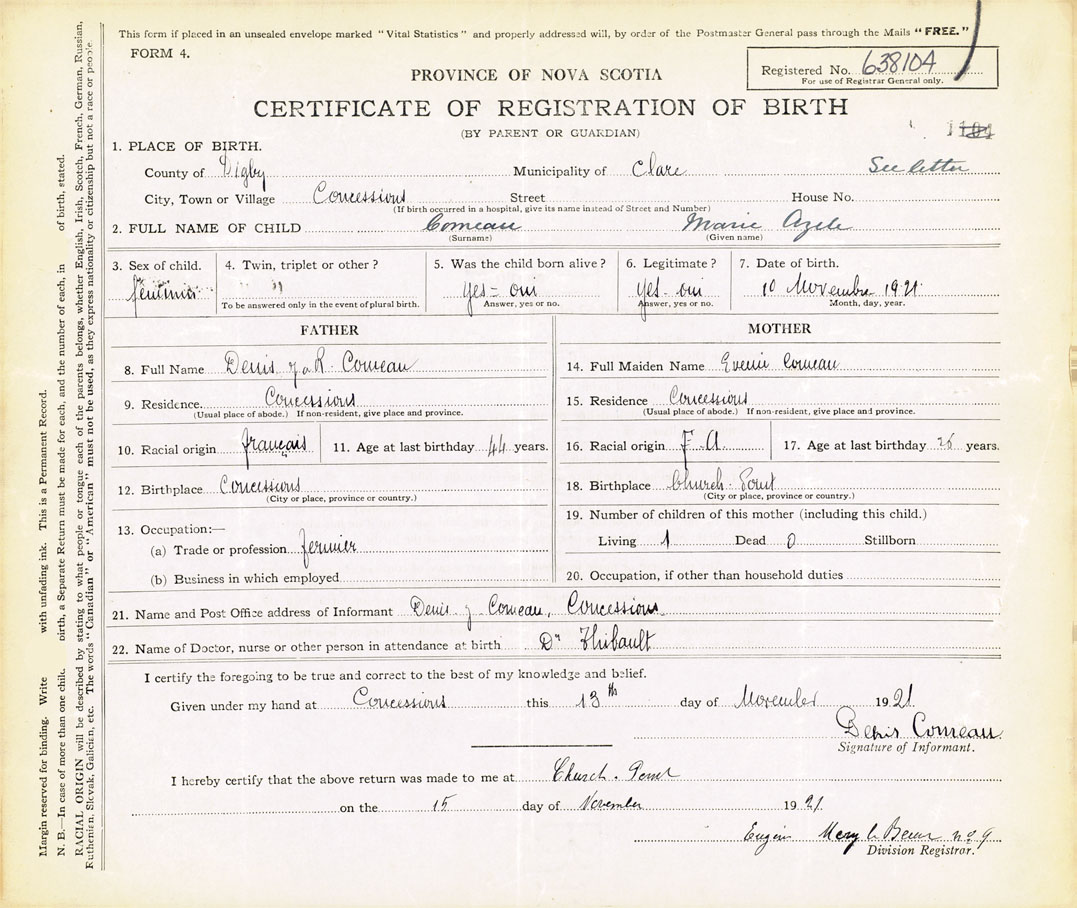 This form if placed in an unsealed envelope marked "Vital Statistics" and properly addressed will, by order of the Postmaster General pass through the Mails "FREE."
FORM 4.
Registered No. 638104
For use of Registrar General only.
PROVINCE OF NOVA SCOTIA
CERTIFICATE OF REGISTRATION OF BIRTH
(BY PARENT OR GUARDIAN)
1. PLACE OF BIRTH.
See letter
County of Digby Municipality of Clare
City, Town or Village Concessions Street House No.
(If birth occurred in a hospital, give its name instead of Street and Number)
2. FULL NAME OF CHILD Comeau Marie Azele
(Surname) (Given name)
3. Sex of child. 4. Twin, triplet or other? 5. Was the child born alive? 6. Legitimate? 7. Date of birth.
yes - oui yes - oui 10 November 1921
To be answered only in the event of plural birth. Answer, yes or no. Answer, yes or no. Month, day, year.
FATHER MOTHER
8. Full Name Denis J à R. Comeau
14. Full Maiden Name Evenie Comeau
9. Residence Concessions
15. Residence Concessions
(Usual place of abode.) If non-resident, give place and province.
(Usual place of abode.) If non-resident, give place and province.
10. Racial origin français 11. Age at last birthday 44 years.
16. Racial origin F. A. 17. Age at last birthday years.
12. Birthplace Concessions
(City or place, province or country.)
18. Birthplace Church Point
(City or place, province or country.)
13. Occupation:—
(a) Trade or profession fermier
(b) Business in which employed
19. Number of children of this mother (including this child.)
Living 1 Dead 0 Stillborn
20. Occupation, if other than household duties
21. Name and Post Office address of Informant Denis J Comeau, Concessions
22. Name of Doctor, nurse or other person in attendance at birth Dr Thibault
I certify the foregoing to be true and correct to the best of my knowledge and belief.
Given under my hand at Concessions this 13th day of November 1921
Denis Comeau
Signature of Informant.
I hereby certify that the above return was made to me at Church Point
on the 15 day of November 1921
no 9
Division Registrar.
Margin reserved for binding. Write with unfading ink. This is a Permanent Record.
N. B.—In case of more than one chil birth, a Separate Return must be made for each, and the number of each, in of birth, stated.
RACIAL ORIGIN will be described by stating to what people or tongue each of the parents belongs, whether English, Irish, Scotch, French, German, Russian,
Ruthenian, Slovak, Galician, etc. The words "Canadian" or "American" must not be used, as they express nationality or citizenship but not a race or people.